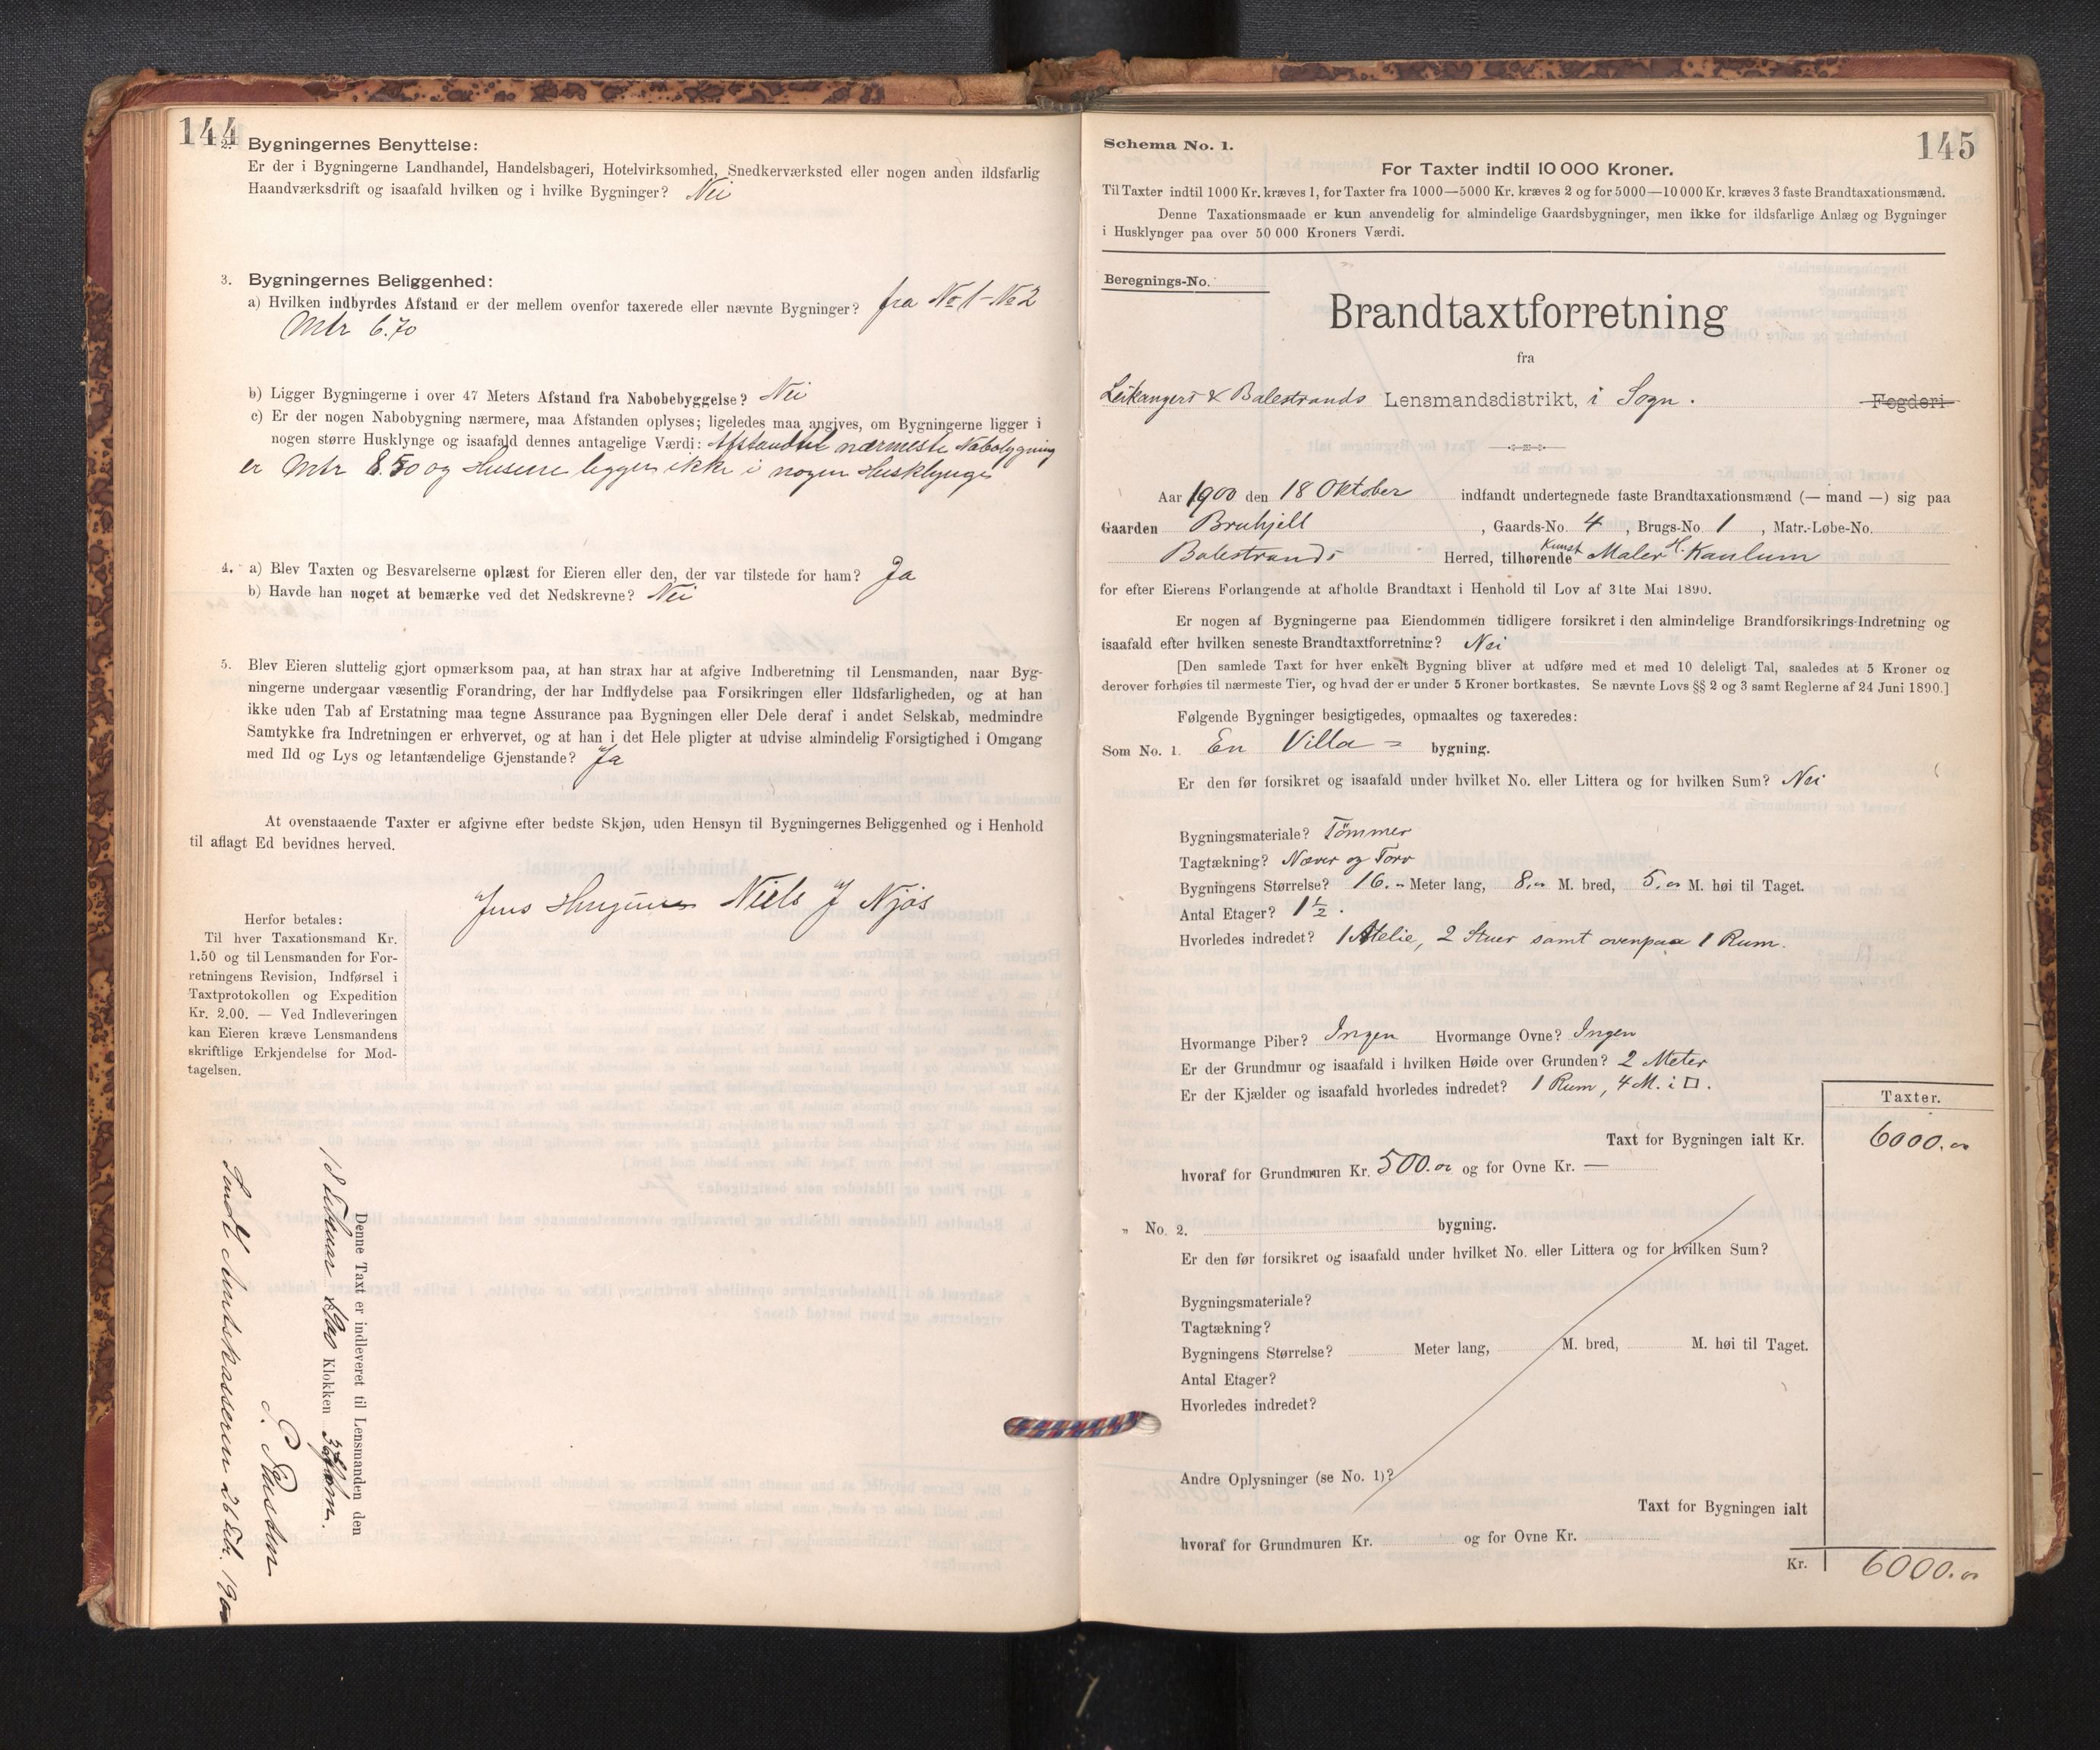 144
2. Bygningernes Benyttelse:
Er der i Bygningerne Landhandel, Handelsbageri, Hotelvirksomhed, Snedkerværksted eller nogen anden ildsfarlig
Haandværksdrift og isaafald hvilken og i hvilke Bygninger? Nei
3. Bygningernes Beliggenhed:
a) Hvilken indbyrdes Afstand er der mellem ovenfor taxerede eller nævnte Bygninger? fra No 1 - No 2
Mtr 6.70
b) Ligger Bygningerne i over 47 Meters Afstand fra Nabobebyggelse? Nei
c) Er der nogen Nabobygning nærmere, maa Afstanden oplyses; ligeledes maa angives, om Bygningerne ligger i
nogen større Husklynge og isaafald dennes antagelige Værdi: Afstand til nærmeste Nabobygning
er Mtr 8.50 og Husene ligger ikke i nogen Husklynge
4. a) Blev Taxten og Besvarelserne oplæst for Eieren eller den, der var tilstede for ham? Ja
b) Havde han noget at bemærke ved det Nedskrevne? Nei
5. Blev Eieren sluttelig gjort opmærksom paa, at han strax har at afgive Indberetning til Lensmanden, naar Byg-
ningerne undergaar væsentlig Forandring, der har Indflydelse paa Forsikringen eller Ildsfarligheden, og at han
ikke uden Tab af Erstatning maa tegne Assurance paa Bygningen eller Dele deraf i andet Selskab, medmindre
Samtykke fra Indretningen er erhvervet, og at han i det Hele pligter at udvise almindelig Forsigtighed i Omgang
med Ild og Lys og letantændelige Gjenstande? Ja
At ovenstaaende Taxter er afgivne efter bedste Skjøn, uden Hensyn til Bygningernes Beliggenhed og i Henhold
til aflagt Ed bevidnes herved.
Jens Niels J Njøs
Herfor betales:
Til hver Taxationsmand Kr.
1.50 og til Lensmanden for For-
retningens Revision, Indførsel i
Taxtprotokollen og Expedition
Kr. 2.00. — Ved Indleveringen
kan Eieren kræve Lensmandens
skriftlige Erkjendelse for Mod-
tagelsen.
Denne Taxt er indleveret til Lensmanden den
18 Februar 1900 Klokken 3
Sendt Amtskasseren 26 Feb. 1900
145
Schema No. 1.
For Taxter indtil 10 000 Kroner.
Til Taxter indtil 1000 Kr. kræves 1, for Taxter fra 1000—5000 Kr. kræves 2 og for 5000—10 000 Kr. kræves 3 faste Brandtaxationsmænd.
Denne Taxationsmaade er kun anvendelig for almindelige Gaardsbygninger, men ikke for ildsfarlige Anlæg og Bygninger
i Husklynger paa over 50 000 Kroners Værdi.
Beregnings-No.
Brandtaxtforretning
fra
Leikangers & Balestrands Lensmandsdistrikt, i Sogn. Fogderi
Aar 1900 den 18 Oktober indfandt undertegnede faste Brandtaxationsmænd (— mand —) sig paa
Gaarden Bruhjell, Gaards-No. 4, Brugs-No. 1, Matr.-Løbe-No.
Balestrands Herred, tilhørende Kunst Maler H. Kaulum
for efter Eierens Forlangende at afholde Brandtaxt i Henhold til Lov af 31te Mai 1890.
Er nogen af Bygningerne paa Eiendommen tidligere forsikret i den almindelige Brandforsikrings-Indretning og
isaafald efter hvilken seneste Brandtaxtforretning? Nei
[Den samlede Taxt for hver enkelt Bygning bliver at udføre med et med 10 deleligt Tal, saaledes at 5 Kroner og
derover forhøies til nærmeste Tier, og hvad der er under 5 Kroner bortkastes. Se nævnte Lovs §§ 2 og 3 samt Reglerne af 24 Juni 1890.]
Følgende Bygninger besigtigedes, opmaaltes og taxeredes:
Som No. 1. En Villa = bygning.
Er den før forsikret og isaafald under hvilket No. eller Littera og for hvilken Sum? Nei
Bygningsmateriale? Tömmer
Tagtækning? Næver og Torv
Bygningens Størrelse? 16.- Meter lang, 8.00 M. bred, 5.00 M. høi til Taget.
Antal Etager? 1 1/2.
Hvorledes indredet? 1 Atelie, 2 Stuer samt ovenpaa 1 Rum.
Hvormange Piber? Ingen Hvormange Ovne? Ingen
Er der Grundmur og isaafald i hvilken Høide over Grunden? 2 Meter
Er der Kjælder og isaafald hvorledes indredet? 1 Rum, 4 M. i □.
Taxter.
Taxt for Bygningen ialt Kr. 6000.00
hvoraf for Grundmuren Kr. 500.00 og for Ovne Kr. —
„ No. 2. bygning.
Er den før forsikret og isaafald under hvilket No. eller Littera og for hvilken Sum?
Bygningsmateriale?
Tagtækning?
Bygningens Størrelse? Meter lang, M. bred, M. høi til Taget.
Antal Etager?
Hvorledes indredet?
Andre Oplysninger (se No. 1)?
Taxt for Bygningen ialt
hvoraf for Grundmuren Kr. og for Ovne Kr.
Kr. 6000.00